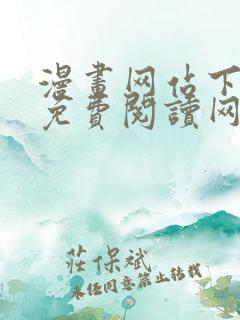 漫畫网佔下
免費閱讀网
莊保斌
未经同意禁止转载